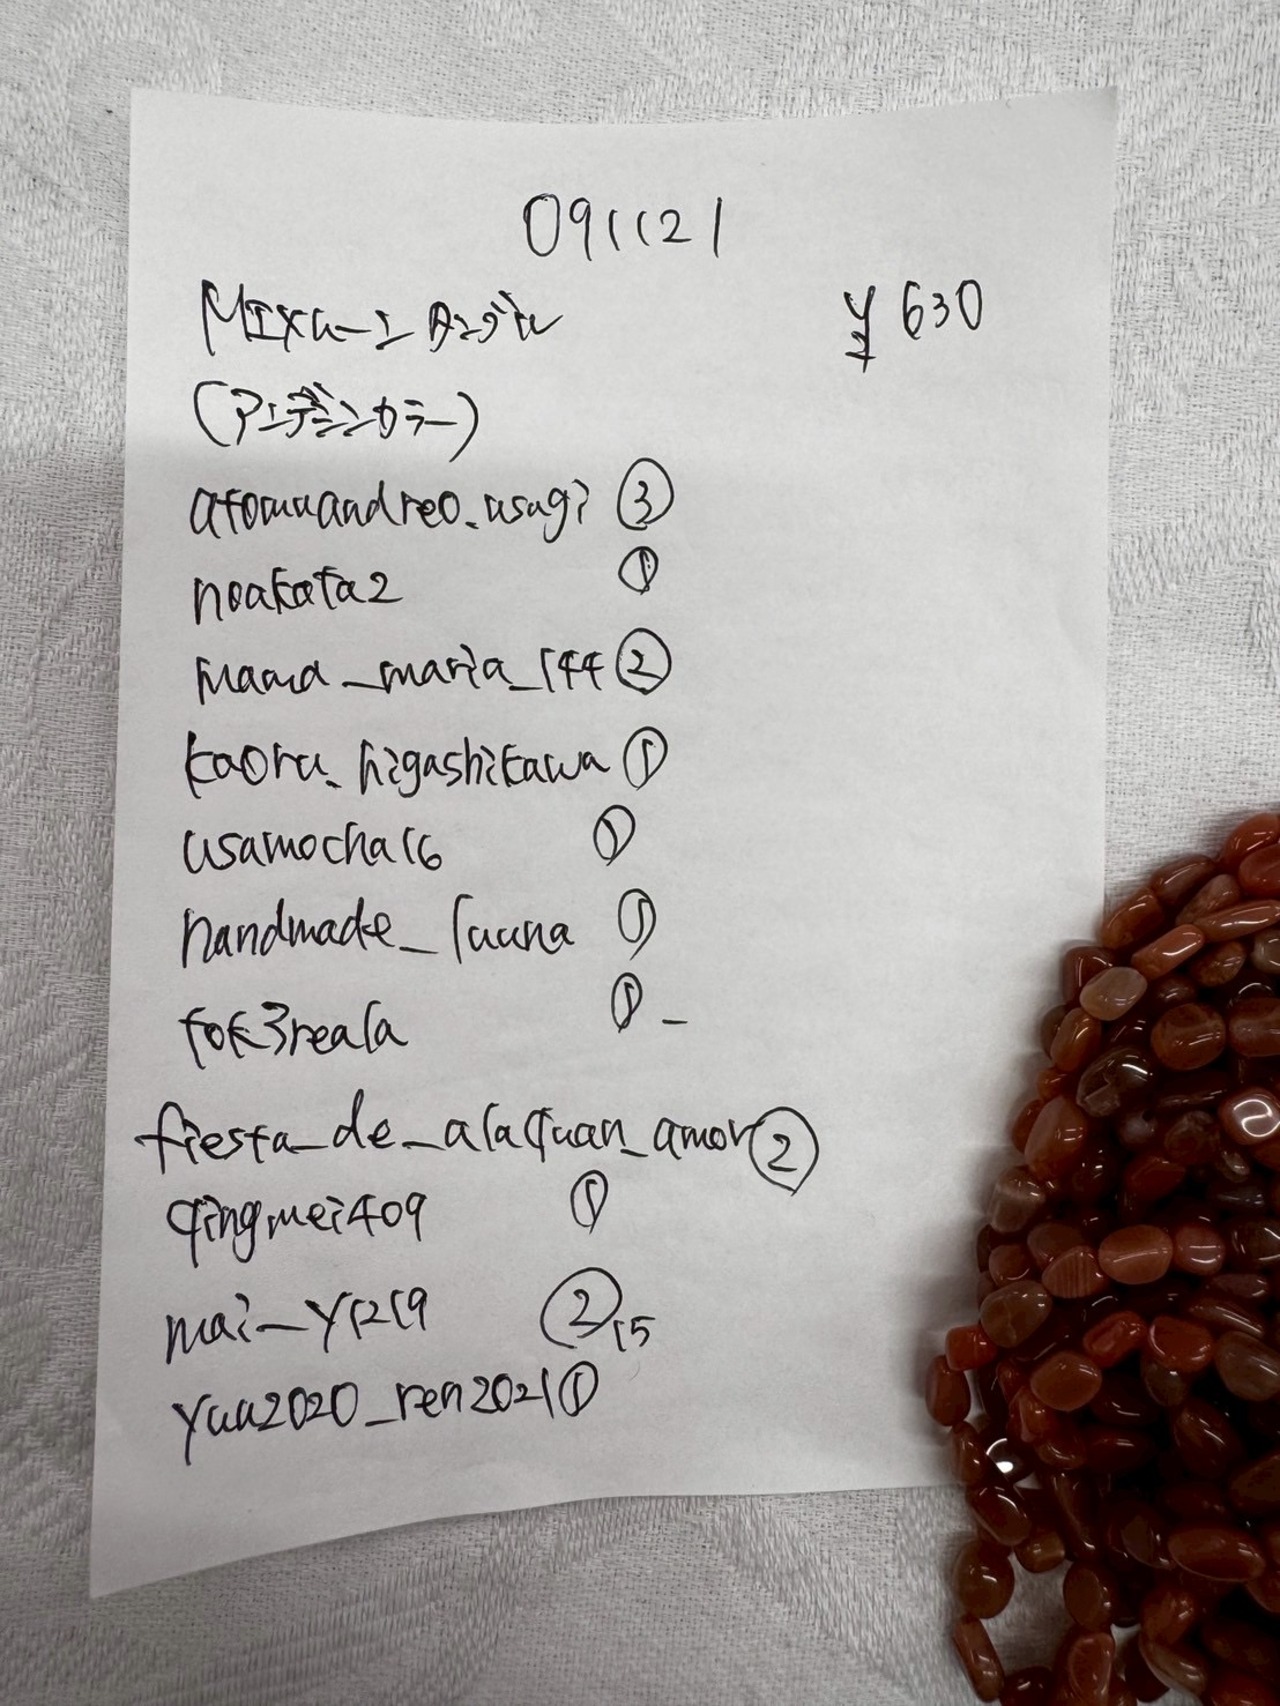 091121
MIXルース タンブル ¥630
(アンデシンカラー)
atomuandreo.usagi ③
noakata2 ①
mama_maria_144 ②
kaoru_higashikawa ①
usamocha16 ①
handmade_launa ①
tok3reala ① -
fiesta_de_alaquan_amor ②
qingmei409 ①
mai_y1219 ② 15
yuu2020_ren2021 ①